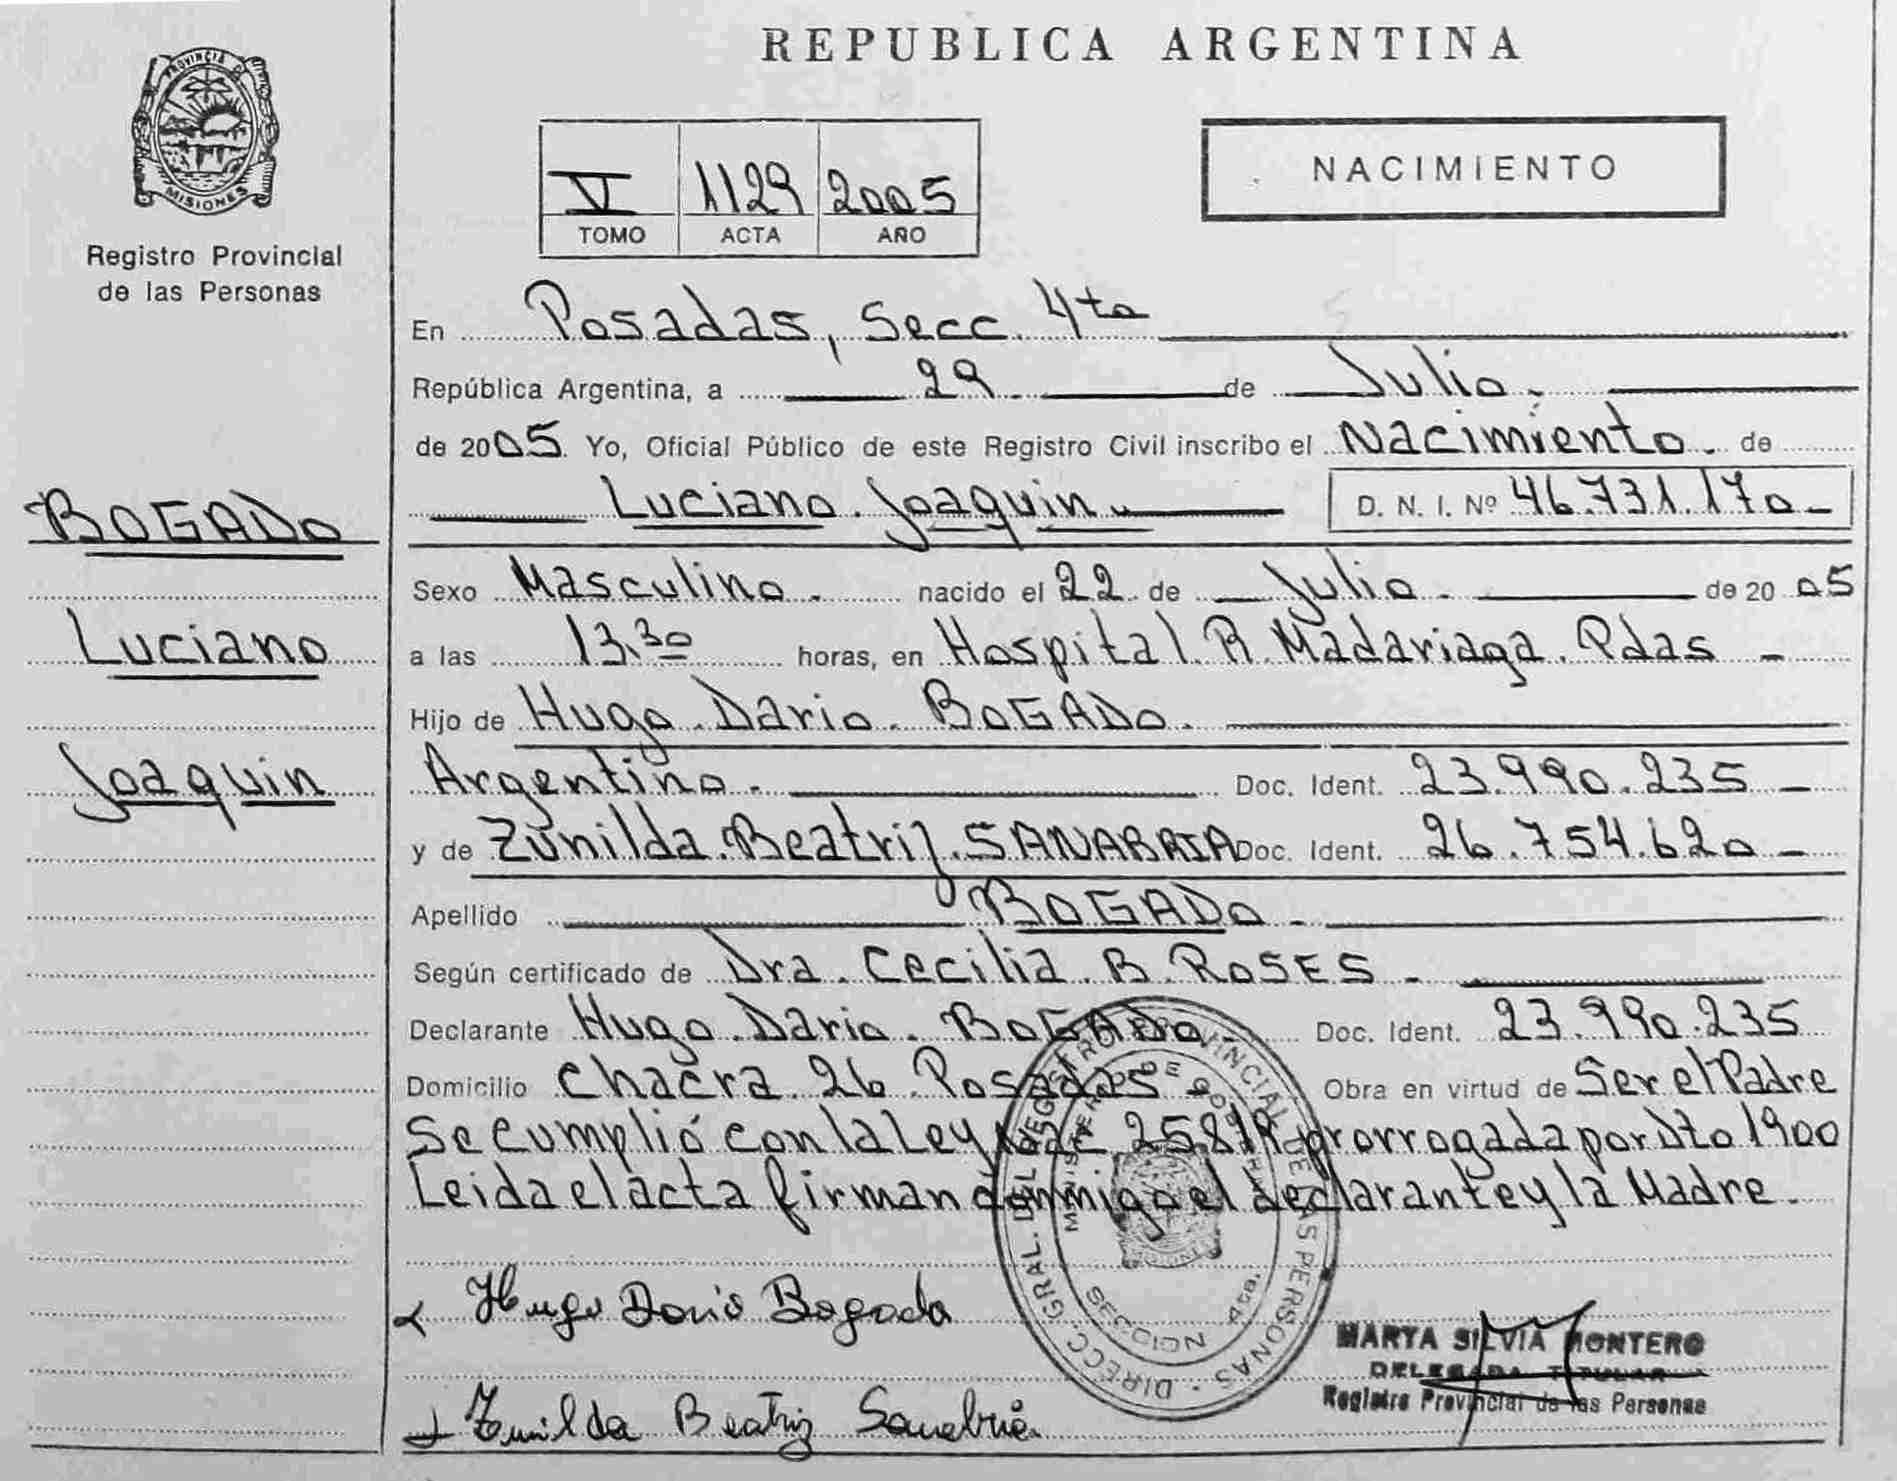 REPUBLICA ARGENTINA
PROVINCIA DE
MISIONES
Registro Provincial
de las Personas
NACIMIENTO
V 1129 2005
TOMO ACTA AÑO
BOGADO
Luciano
Joaquin
En Posadas, Secc. 4ta
República Argentina, a 29 de Julio.
de 2005. Yo, Oficial Público de este Registro Civil inscribo el Nacimiento. de
Luciano Joaquin D. N. I. Nº 46.731.170_
Sexo Masculino. nacido el 22 de Julio. de 2005
a las 13.30 horas, en Hospital R. Madariaga. Pdas _
Hijo de Hugo Dario BOGADO.
Argentino. Doc. Ident. 23.990.235 _
y de Zunilda Beatriz SANABRIA Doc. Ident. 26.754.620 _
Apellido BOGADO.
Según certificado de Dra. Cecilia B. ROSES.
Declarante Hugo Dario BOGADO. Doc. Ident. 23.990.235
Domicilio Chacra 26 Posadas. Obra en virtud de Ser el Padre
Se cumplió con la Ley 25819 prorrogada por Dto 1900
Leida el acta firman conmigo el declarante y la Madre.
Hugo Dario Bogado
Zunilda Beatriz Sanabria
DIRECC. GRAL. DEL REGISTRO PROVINCIAL DE LAS PERSONAS
MINISTERIO DE GOBIERNO
SECCION 4ta.
MARTA SILVIA MONTERO
DELEGADA TITULAR
Registro Provincial de las Personas